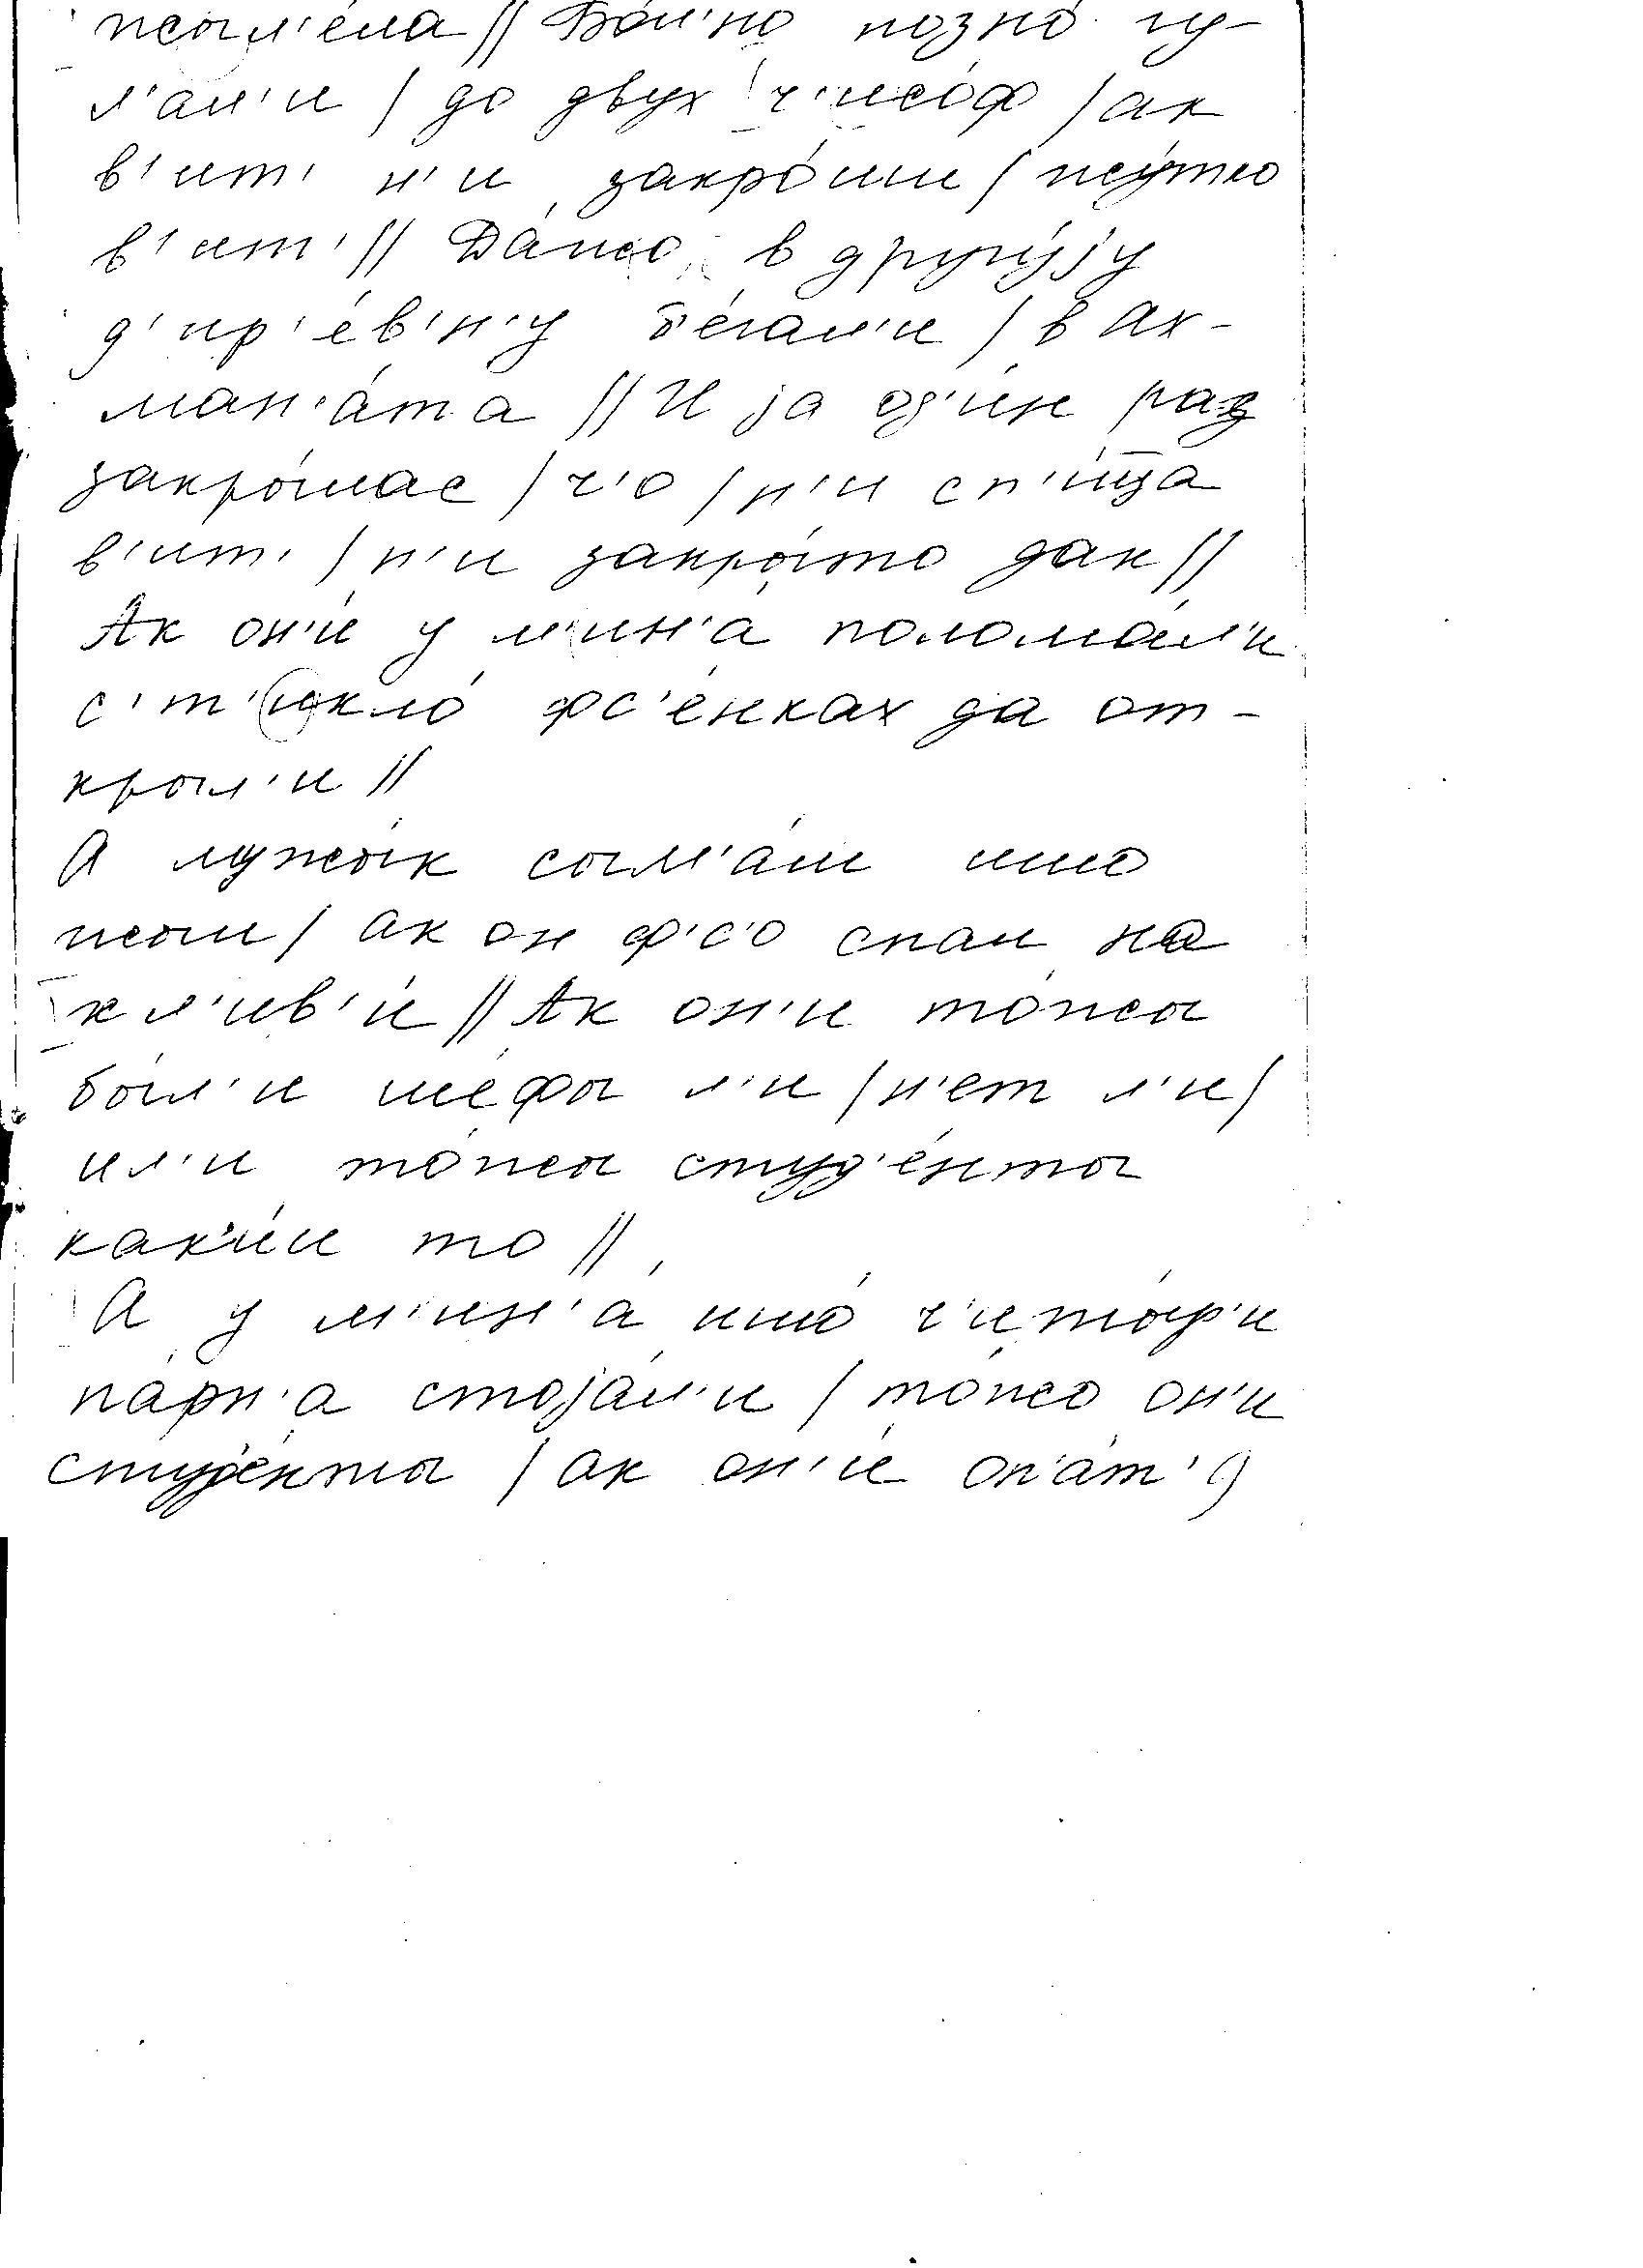 жыл'ела // Бо́л'но позно́ гу-
л'ал'и / до двух ч'исо́ф / ак
в'ит' н'и закро́иш / жу́тко
в'ит' // Да́жо в другу́jу
д'ир'е́в'н'у б'е́гал'и / в Ах-
ман'а́та // И jа од'и́н раз
закры́лас / ч'о / н'и сп'и́ца
в'ит' / н'и закры́то дак //
Ак он'и́ у м'ин'а́ поломал'и
с'т'икло́ фс'е́нках да от-
крыл'и //
А мужы́к сыл'а́ш ишо́
жыл / ак он ф'с'о спал на
хл'ив'и́ // Ак он'и то́жы
бы́л'и ше́фы л'и / н'ет л'и /
ил'и то́жы студ'е́нты
как'и́и то //
А у м'ин'а́ ишо́ ч'иты́р'и
па́рн'а стоjа́л'и / то́жо он'и
студ'е́нты / ак он'и́ оп'а́т'